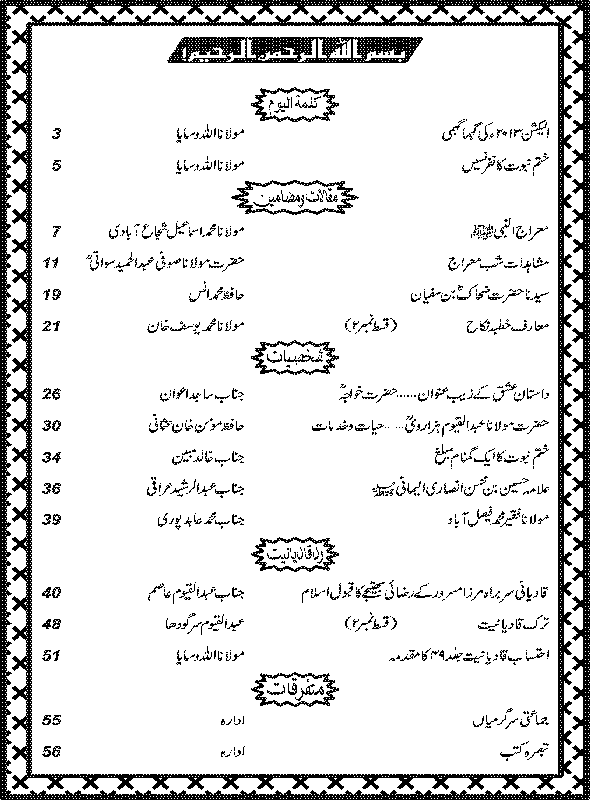 بسم اللہ الرحمن الرحیم
کلمۃ الیوم
الیکشن ۲۰۱۳ء کی گہما گہمی مولانا اللہ وسایا 3
ختم نبوت کانفرنسیں مولانا اللہ وسایا 5
مقالات ومضامین
معراج النبی ﷺ مولانا محمد اسماعیل شجاع آبادی 7
مشاہدات شب معراج حضرت مولانا صوفی عبدالحمید سواتیؒ 11
سیدنا حضرت ضحاکؓ بن سفیان حافظ محمد انس 19
معارف خطبہ نکاح (قسط نمبر ۲) مولانا محمد یوسف خان 21
شخصیات
داستان عشق کے زیب عنوان ...... حضرت خواجہؒ جناب ساجد اعوان 26
حضرت مولانا عبدالقیوم ہزارویؒ ...... حیات وخدمات حافظ مومن خان عثمانی 30
ختم نبوت کا ایک گمنام مبلغ جناب خالد متین 34
علامہ حسین بن محسن انصاری الیمانی جناب عبدالرشید عراقی 36
مولانا فقیر محمد فیصل آباد جناب محمد عابد پوری 39
ردقادیانیت
قادیانی سربراہ مرزا مسرور کے رضائی بھتیجے کا قبول اسلام جناب عبدالقیوم عاصم 40
ترک قادیانیت (قسط نمبر ۲) عبدالقیوم سرگودھا 48
احتساب قادیانیت جلد ۴۹ کا مقدمہ مولانا اللہ وسایا 51
متفرقات
جماعتی سرگرمیاں ادارہ 55
تبصرہ کتب ادارہ 56